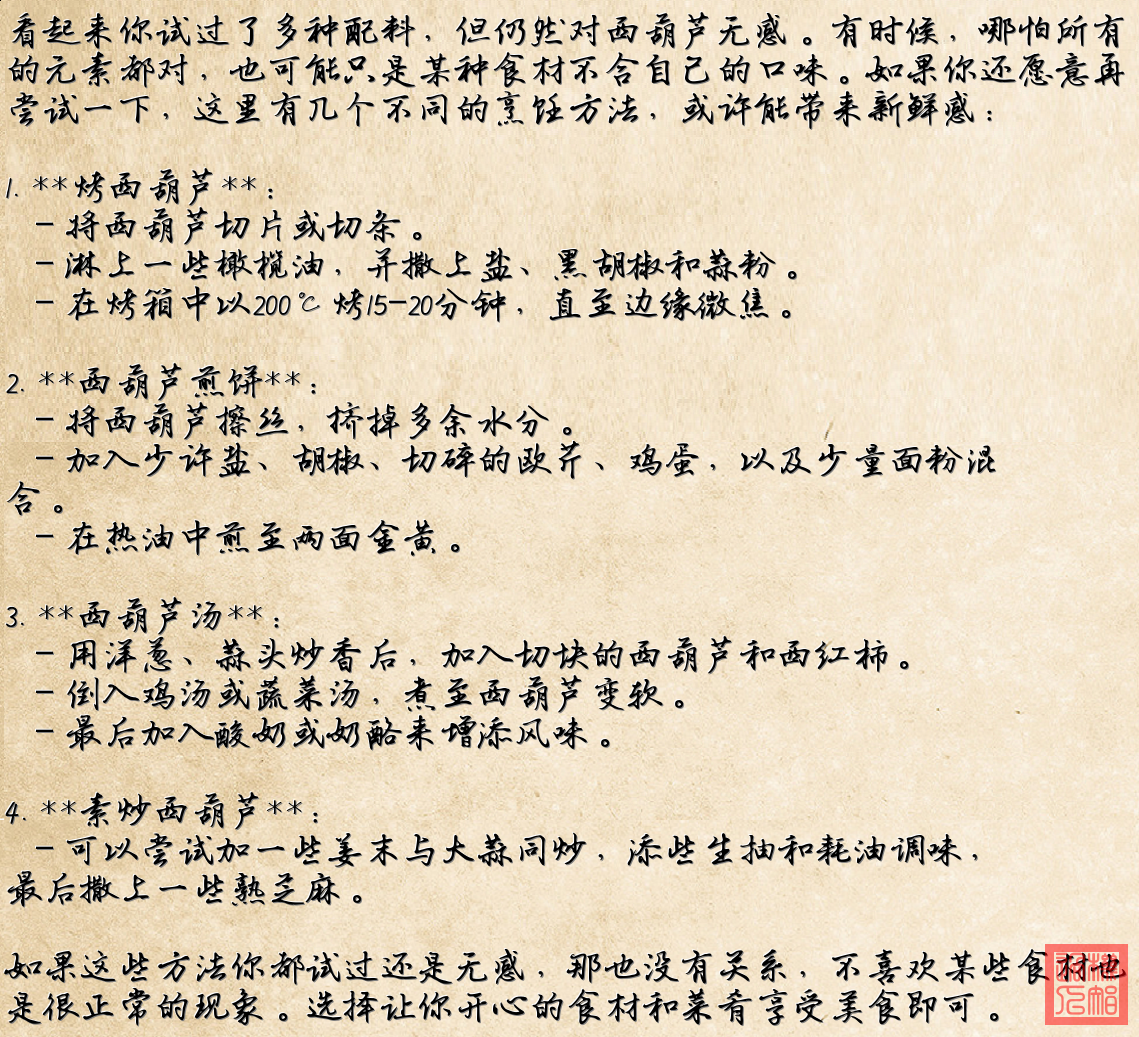 看起来你试过了多种配料，但仍然对西葫芦无感。有时候，哪怕所有
的元素都对，也可能只是某种食材不合自己的口味。如果你还愿意再
尝试一下，这里有几个不同的烹饪方法，或许能带来新鲜感：
1. **烤西葫芦**：
- 将西葫芦切片或切条。
- 淋上一些橄榄油，并撒上盐、黑胡椒和蒜粉。
- 在烤箱中以200℃烤15-20分钟，直至边缘微焦。
2. **西葫芦煎饼**：
- 将西葫芦擦丝，挤掉多余水分。
- 加入少许盐、胡椒、切碎的欧芹、鸡蛋，以及少量面粉混
合。
- 在热油中煎至两面金黄。
3. **西葫芦汤**：
- 用洋葱、蒜头炒香后，加入切块的西葫芦和西红柿。
- 倒入鸡汤或蔬菜汤，煮至西葫芦变软。
- 最后加入酸奶或奶酪来增添风味。
4. **素炒西葫芦**：
- 可以尝试加一些姜末与大蒜同炒，添些生抽和耗油调味，
最后撒上一些熟芝麻。
如果这些方法你都试过还是无感，那也没有关系，不喜欢某些食材也
是很正常的现象。选择让你开心的食材和菜肴享受美食即可。